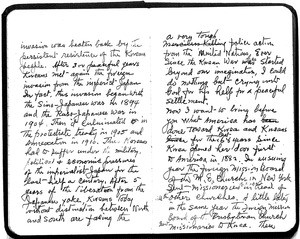 invasion was beaten back by the
persistent resistance of the Korean
people. After 300 peaceful years
Koreans met again the foreign
invasion from the imperial Japan.
In fact, this invasion began with
the Sino-Japanese war in 1894
and the Russo-Japanese war in
1904. Then it culminated in
the protectorate treaty in 1905 and
annexation in 1910. Thus Korea
had to suffer under the military,
political & economic pressures
of the imperialist Japan for the
last half a century. After 5
years of the liberation from the
Japanese yoke, Korea today
without distinction between North
and South are facing the
a very tough
killing police action
from the United Nations. Ever
since the Korean War was started
beyond our imagination, I could
do nothing but crying unto
God for his help for a peaceful
settlement.
Now I want to bring before
you what America has been
done toward Korea and Koreans
ever for these years since
Korea opened her door first
to America in 1882. In ensuing
year the foreign Mission board
of the M. E. Church in New York
sent missionaries in Korea of
other churches, & little later
in the same year the foreign Mission
Board of Presbyterian Church
missionaries to Korea. Then